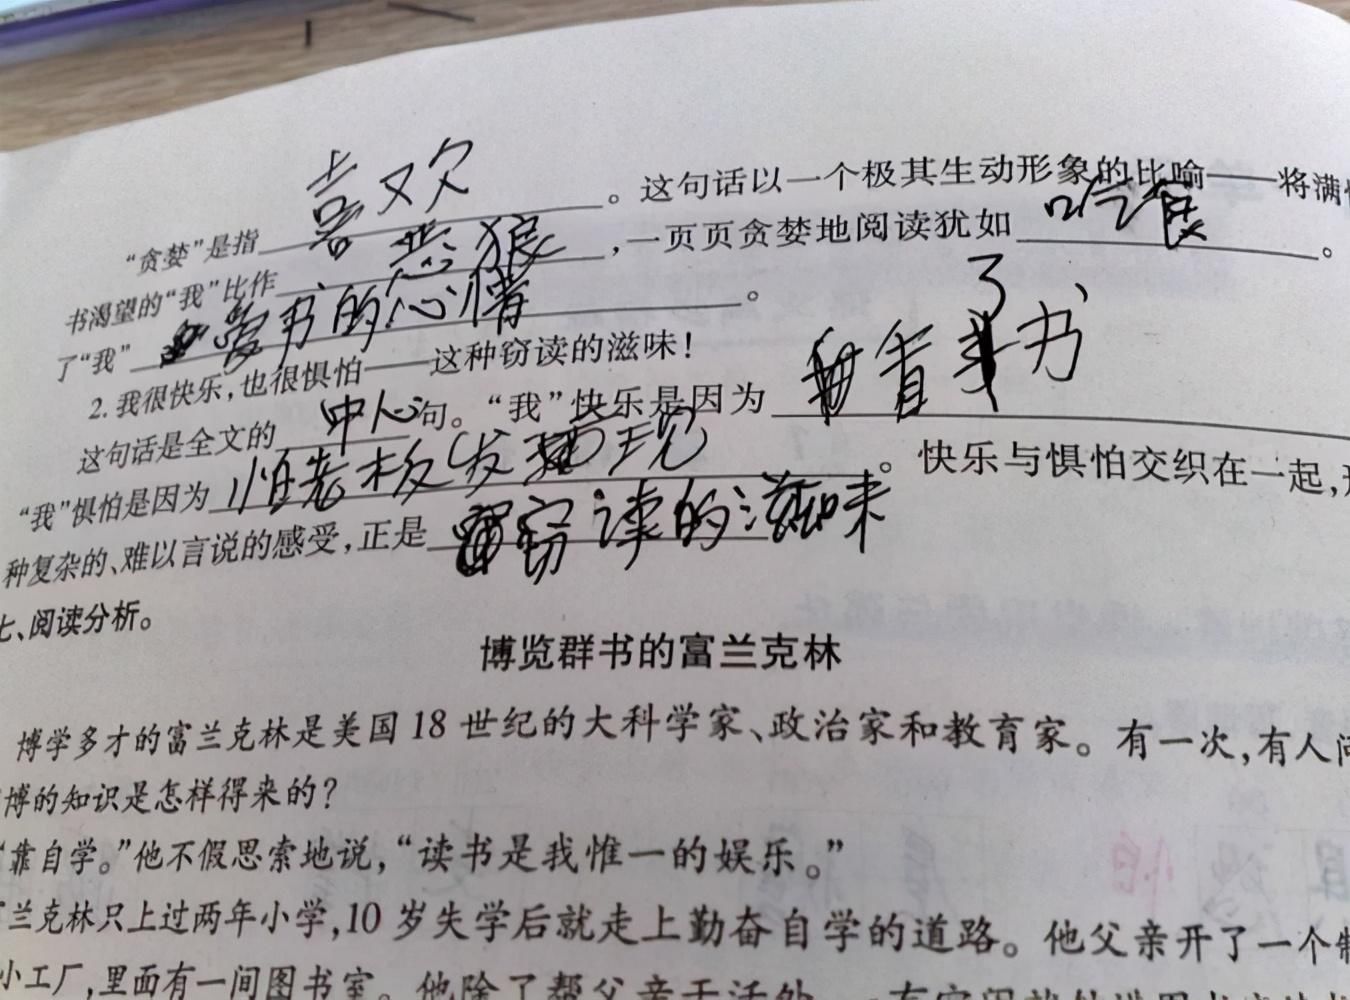 “贪婪”是指喜欢。这句话以一个极其生动形象的比喻——将满
书渴望的“我”比作恶狼,一页页贪婪地阅读犹如吃食。
了“我”爱书的心情。
2. 我很快乐,也很惧怕——这种窃读的滋味!
这句话是全文的中心句。“我”快乐是因为看了书
“我”惧怕是因为怕老板发现。快乐与惧怕交织在一起,
种复杂的、难以言说的感受,正是窃读的滋味
七、阅读分析。
博览群书的富兰克林
博学多才的富兰克林是美国 18 世纪的大科学家、政治家和教育家。有一次,有人问
博的知识是怎样得来的?
“靠自学。”他不假思索地说,“读书是我惟一的娱乐。”
兰克林只上过两年小学,10 岁失学后就走上勤奋自学的道路。他父亲开了一个制
小工厂,里面有一间图书室。他除了帮父亲干活外,一有空闲就